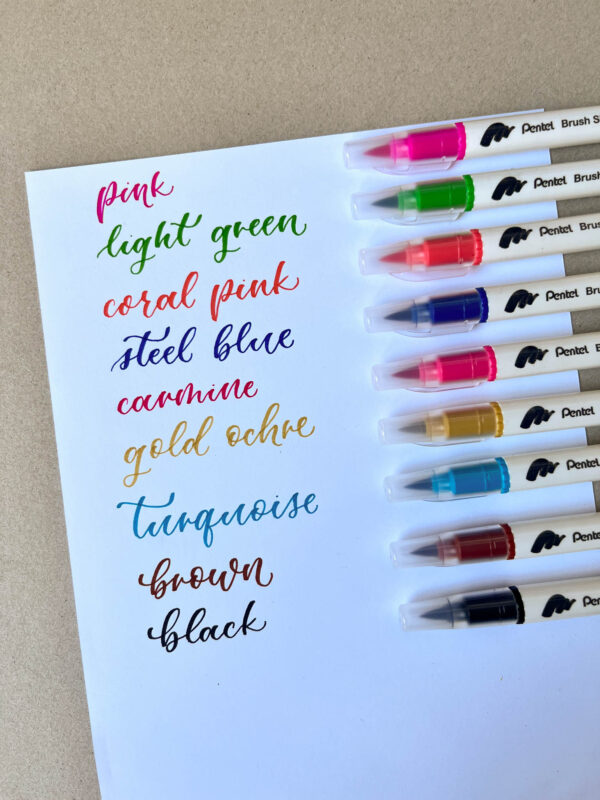 pink
Pentel Brush S
light green
Pentel Brush
coral pink
Pentel Brus
steel blue
Pentel Bru
carmine
Pentel B
gold ochre
Pentel
turquoise
Pentel
brown
Pentel
black
Pente